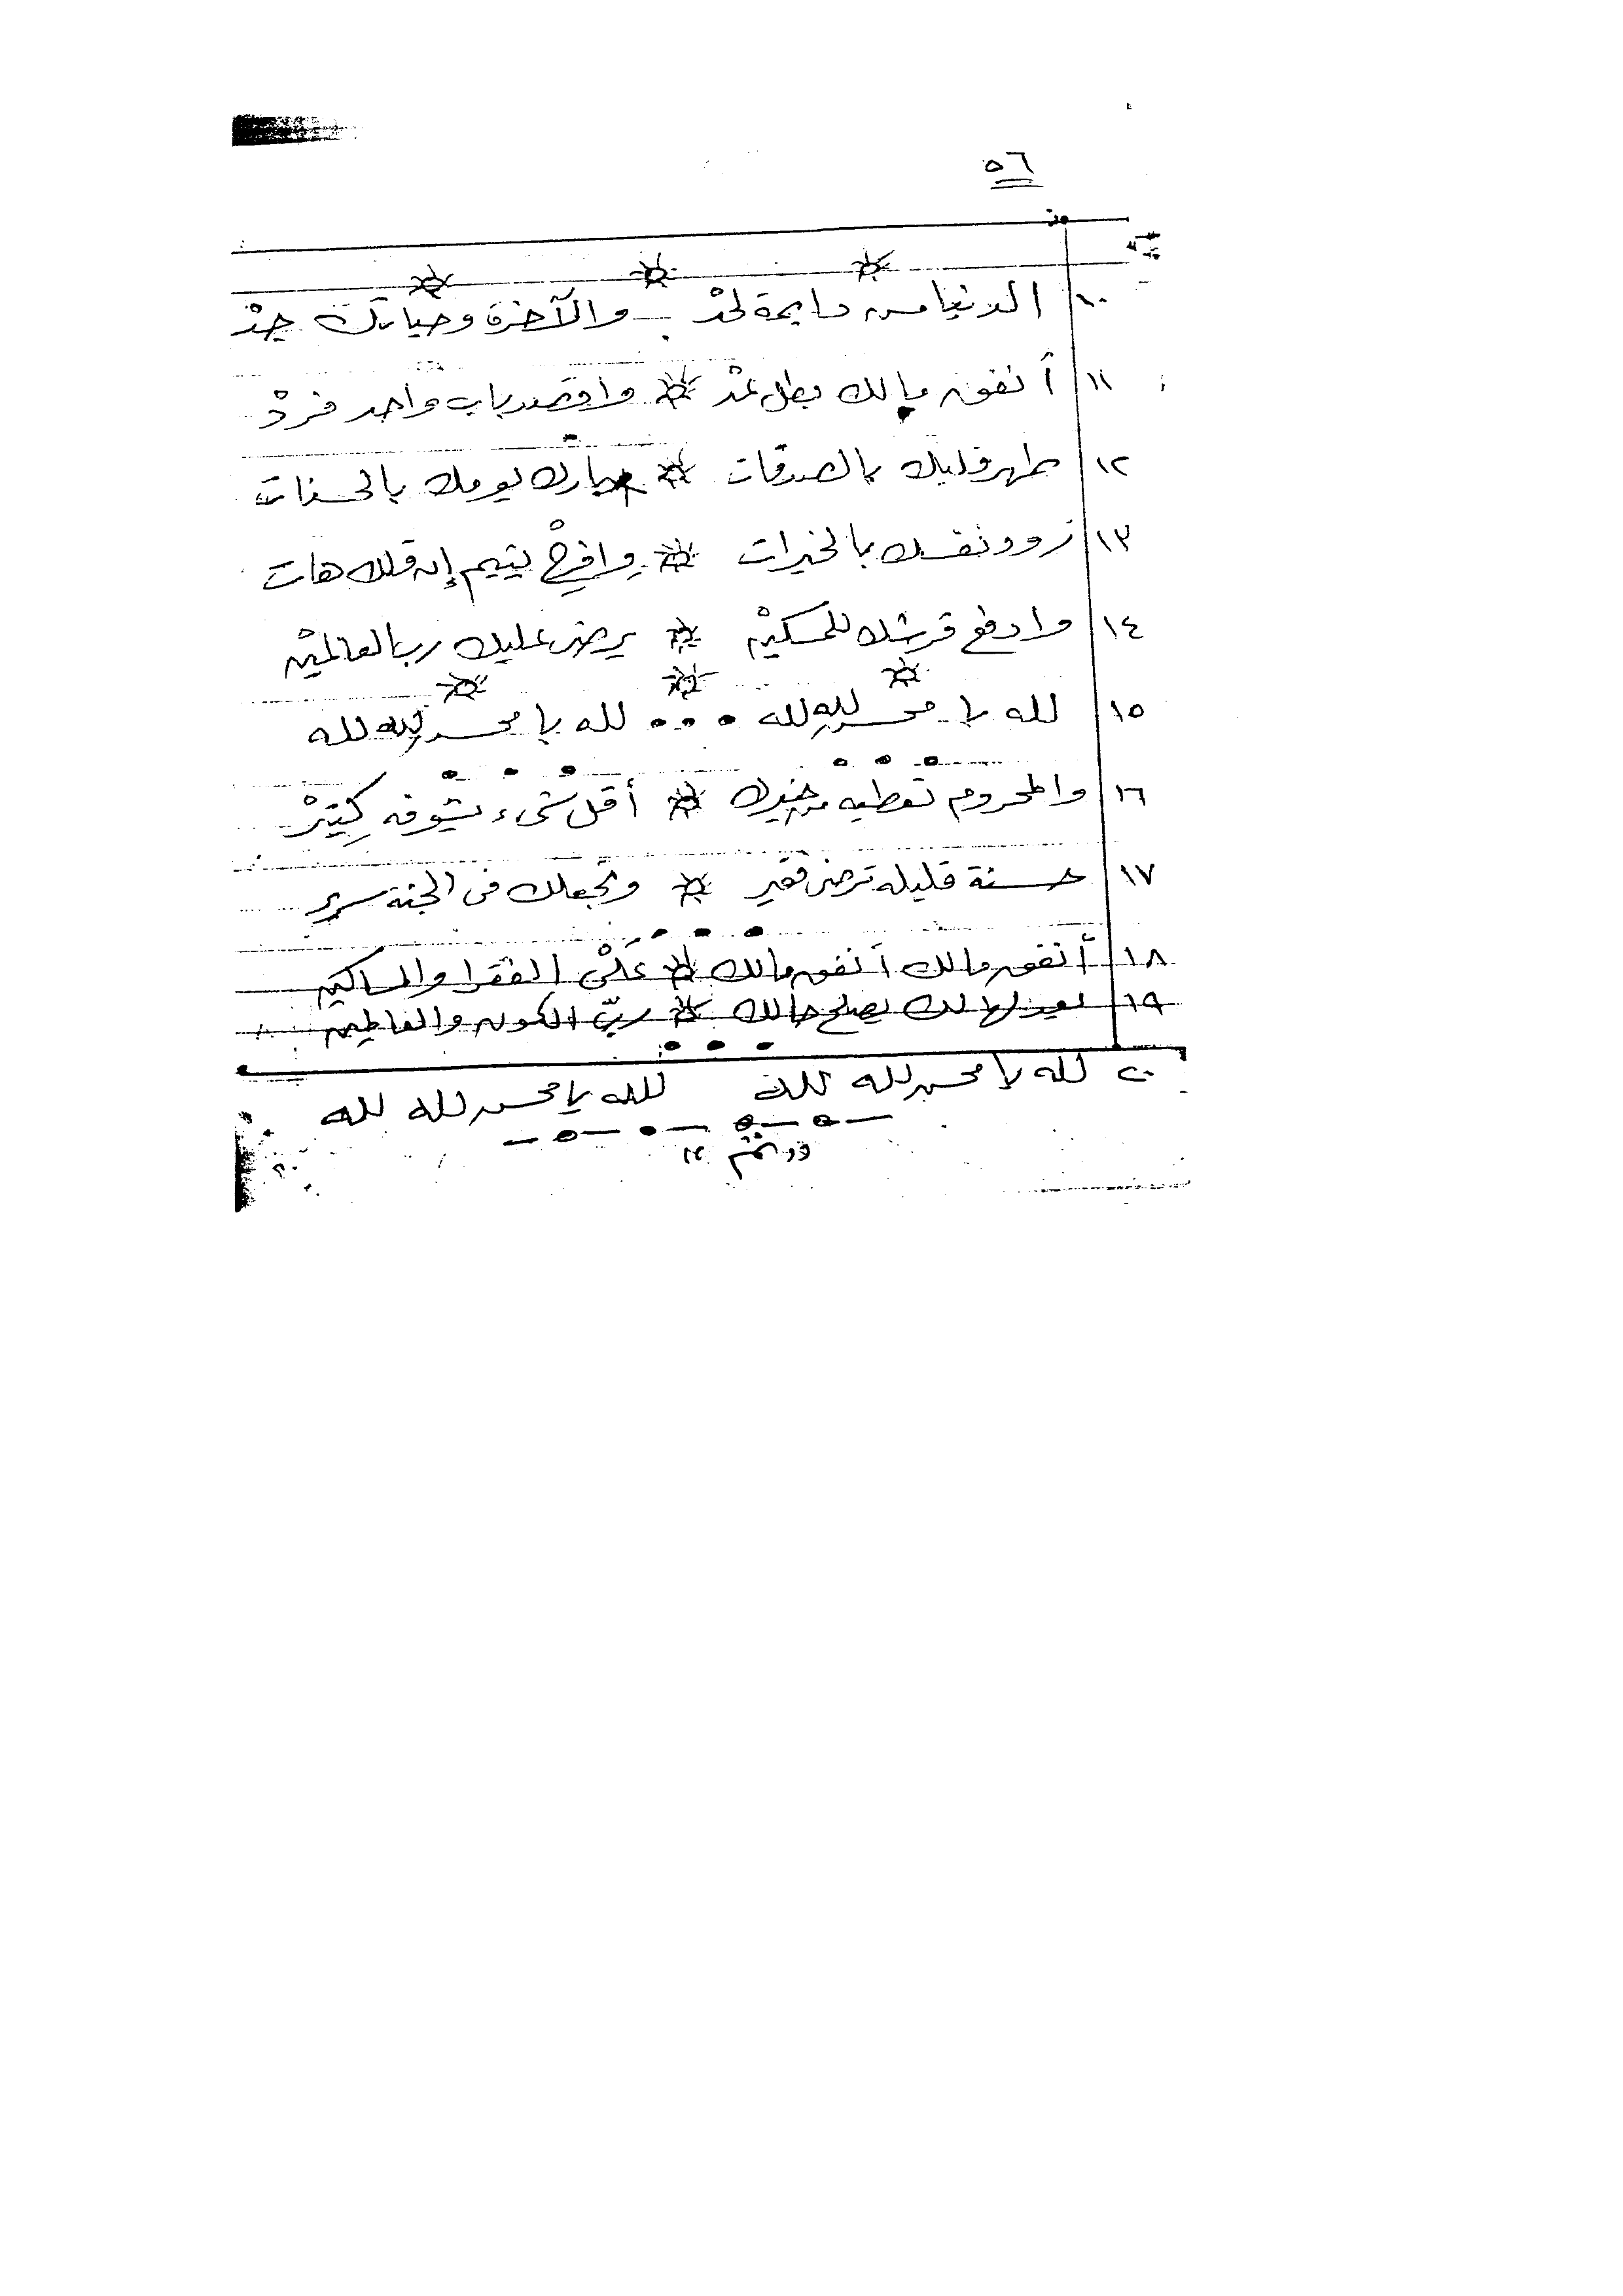 ٥٦
١٠ الدنيا مس دايمة لحد والآخرة وحياتك جد
١١ أنفق مالك بطل عد وافصد باب واحد فرد
١٢ طهر قلبك بالصدقات بارك يومك بالحسنات
١٣ زود نفسك بالخيرات وافرح يتيم إن قلك هات
١٤ وادفع قرشك للمسكين يرضى عليك رب العالمين
١٥ لله يا محسن لله لله ... لله يا محسن لله لله
١٦ والمحروم تعطيه من خيرك أقل شىء يشوفه كتير
١٧ حسنة قليله ترضى فقير وتجعلك فى الجنة سرير
١٨ أنفق مالك أنفق مالك على الفقرا والمساكين
١٩ يصلح حالك ربّ الكون والعالمين
٢٠ لله يا محسن لله لله لله يا محسن لله لله